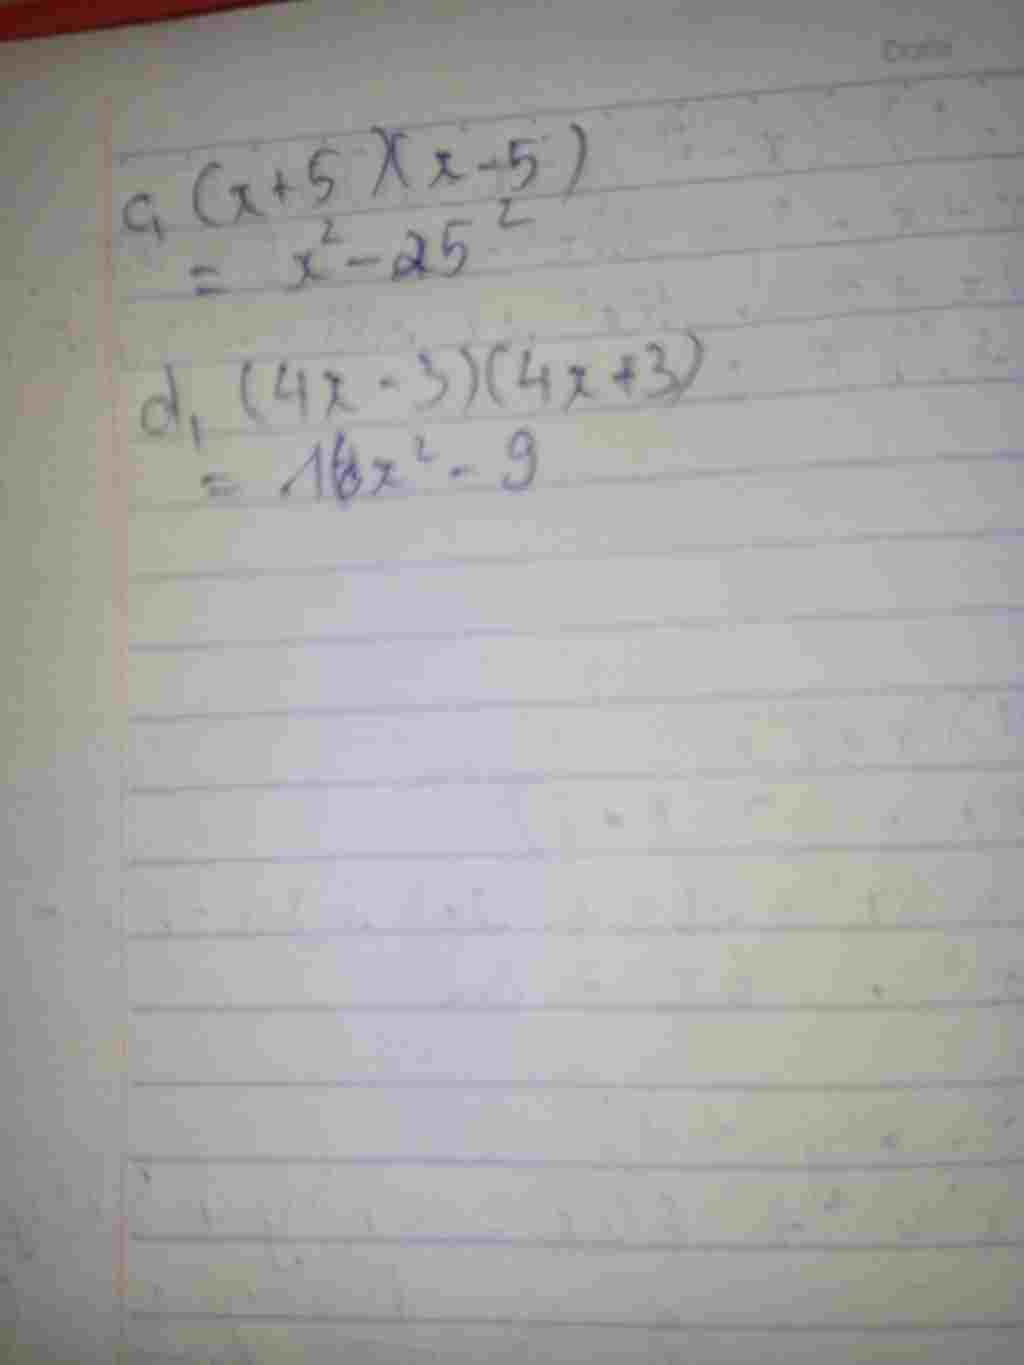 c, (x+5)(x-5)
= x² - 25²
d, (4x - 3)(4x+3)
= 16x² - 9